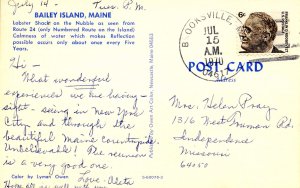 July 14 - Tues. P.M.
BAILEY ISLAND, MAINE
Lobster Shack on the Nubble as seen from
Route 24 (only Numbered Route on the Island)
Calmness of water which makes Reflection
possible occurs only about once every Five
Years.
Hi -
What wonderful
experiences we are having -
sight-seeing in New York
City, and through the
beautiful Maine countryside.
Unbelievable! The reunion
is a very good one.
Love - Oleta
Color by Lyman Owen
POST CARD
Address
JUL
15
A.M.
1970
Mrs. Helen Pray
1316 West Truman Rd.
Independence
Missouri
64050